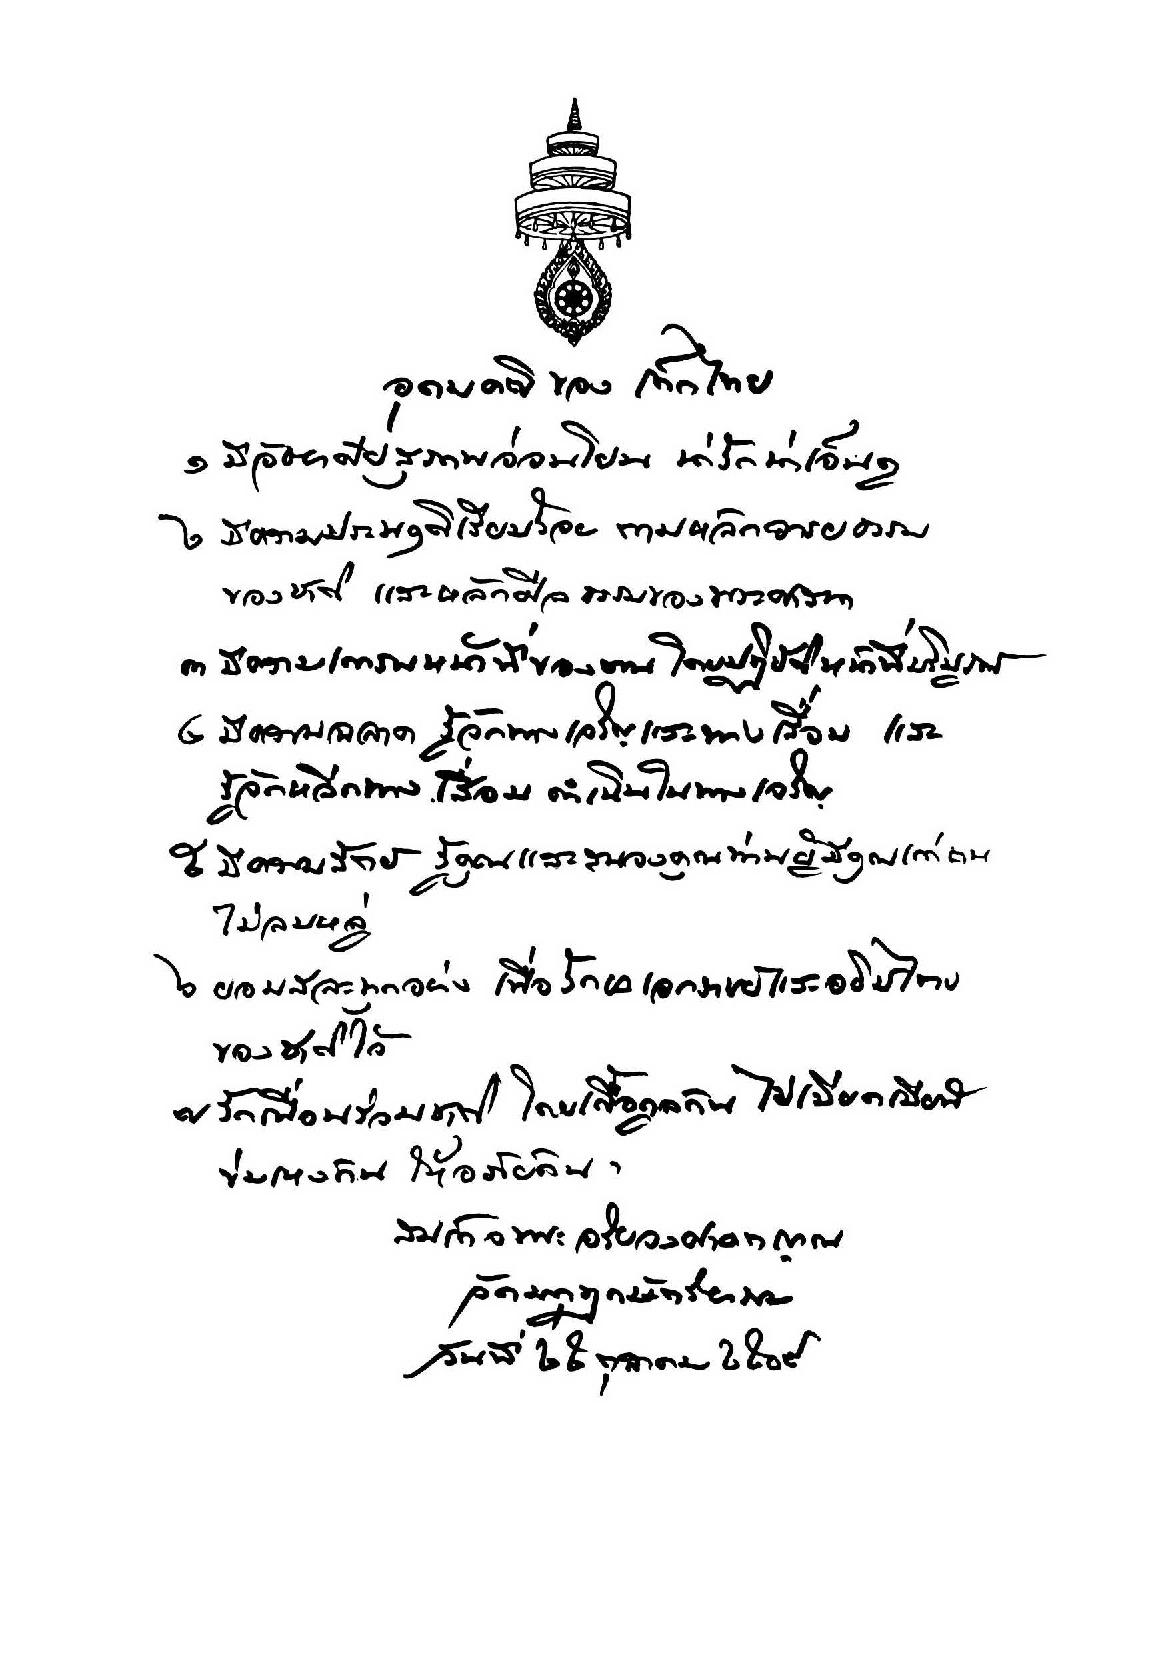 อุดมคติ ของ เด็กไทย
๑ มีอัธยาศัยสุภาพอ่อนโยน น่ารัก น่าเอ็นดู
๒ มีความประพฤติเรียบร้อย ตามหลักจรรยาธรรม
ของชาติ และหลักศีลธรรมของพระศาสนา
๓ มีความเคารพหน้าที่ของตน โดยปฏิบัติหน้าที่บริบูรณ์
๔ มีความฉลาด รู้จักทางเจริญและทางเสื่อม และ
รู้จักหลีกทางเสื่อม ดำเนินในทางเจริญ
๕ มีความกตัญญู รู้คุณและสนองคุณท่านผู้มีคุณแก่ตน
ไม่ลบหลู่
๖ ยอมสละทุกอย่าง เพื่อรักษาเอกราชและอธิปไตย
ของชาติไว้
๗ รักเพื่อนร่วมชาติ โดยเกื้อกูลกัน ไม่เบียดเบียน
ข่มเหงกัน ให้อภัยกัน ฯ
สมเด็จพระอริยวงศาคตญาณ
วัดมกุฏกษัตริยาราม
วันที่ ๒๕ ตุลาคม ๒๕๐๙